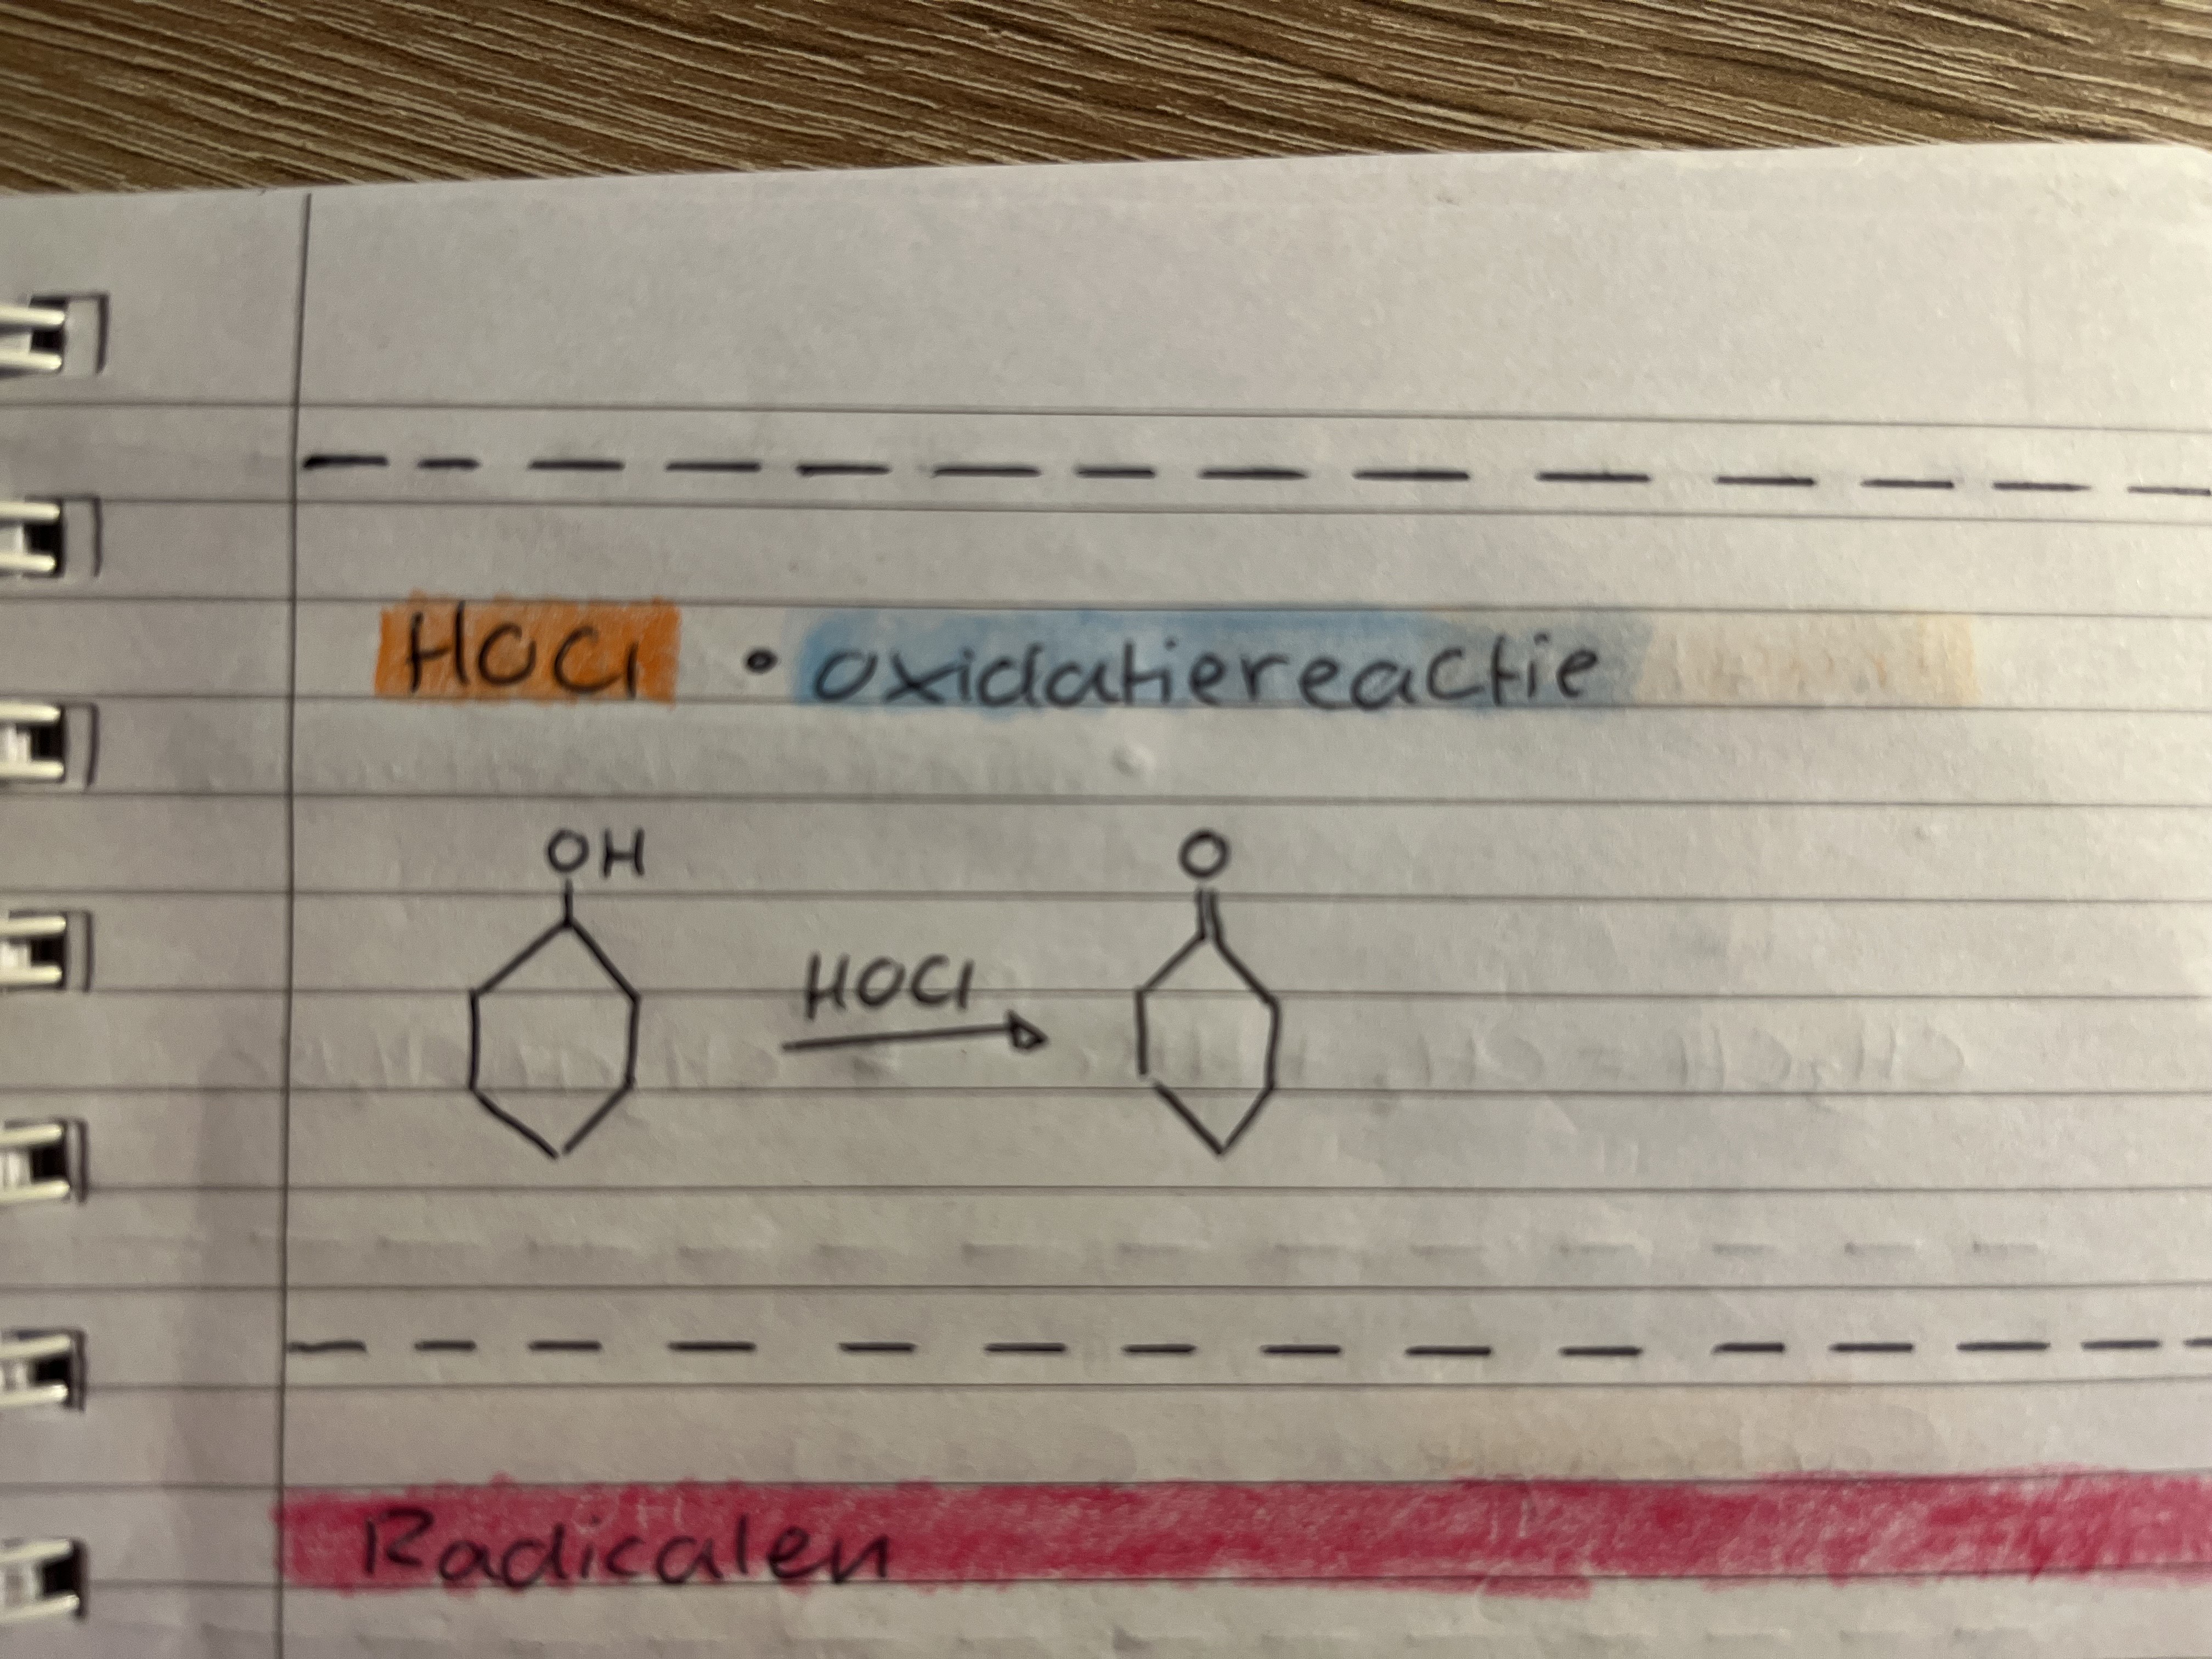 HOCl • oxidatiereactie
OH
O
HOCl
Radicalen